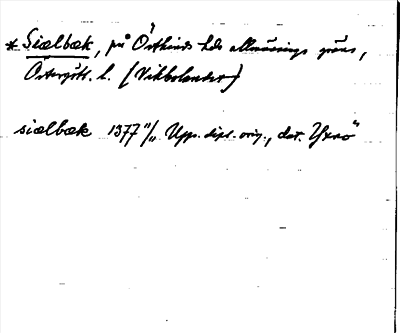 * Siælbæk, på Östkinds hds allmännings gräns,
Östergötl. l. (Vikbolandet)
siælbæk 1377 11/11 Upps. dipl. orig., dat. Yxnö